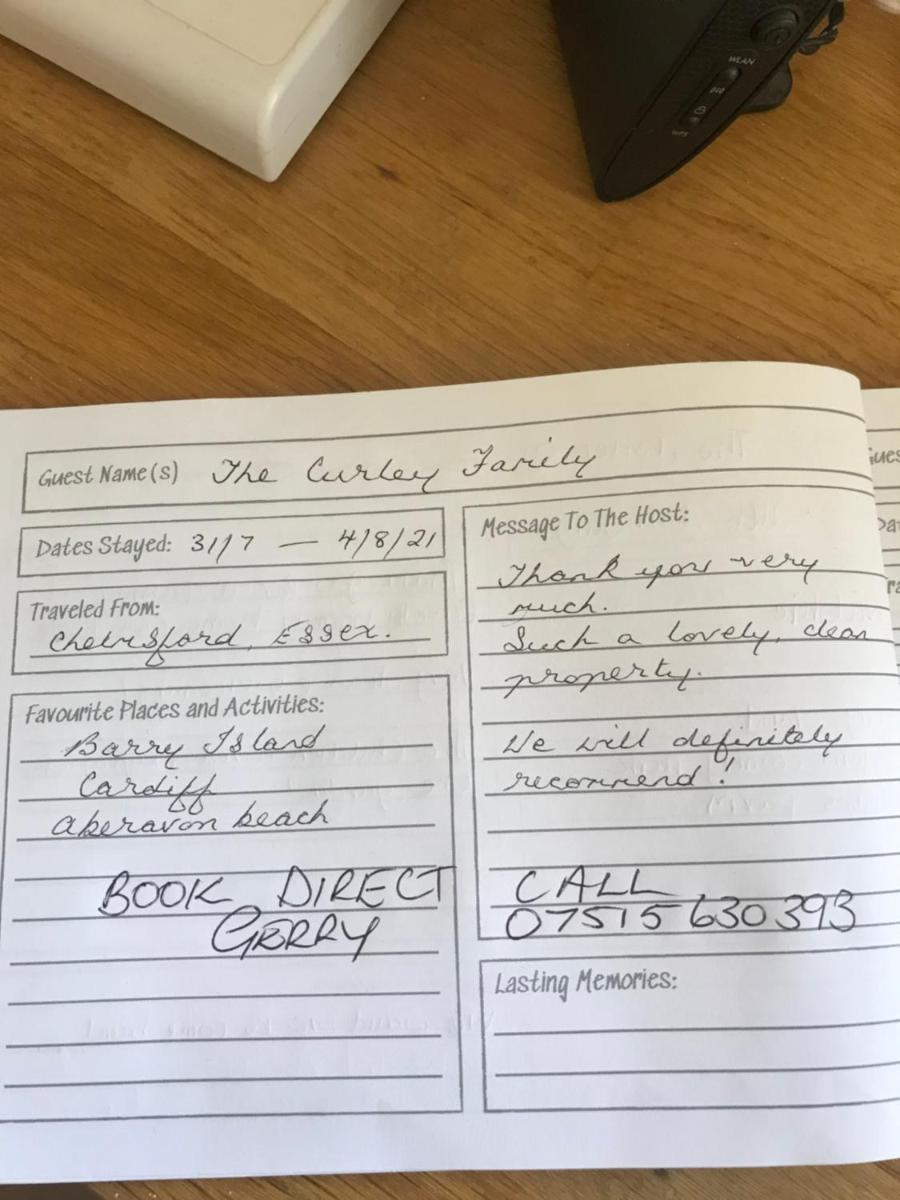 WLAN
WPS
Guest Name(s) The Curley Family
Dates Stayed: 31/7 — 4/8/21
Traveled From:
Chelmsford, Essex.
Favourite Places and Activities:
Barry Island
Cardiff
Aberavon beach
BOOK DIRECT
GERRY
Message To The Host:
Thank you very
much.
Such a lovely, clean
property.
We will definitely
recommend!
CALL
07515 630 393
Lasting Memories: